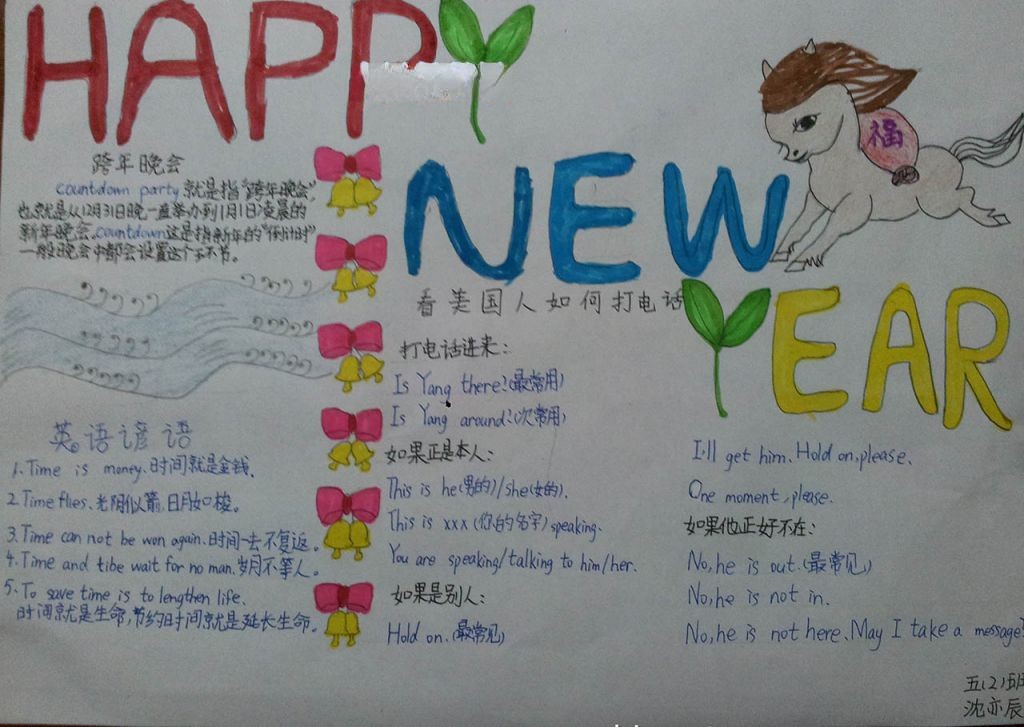 HAPPY
NEW
YEAR
福
跨年晚会
countdown party 就是指“跨年晚会”,
也就是从12月31日晚一直举办到1月1日凌晨的
新年晚会,countdown这是指新年的“倒计时”
一般晚会中都会设置这个环节。
英语谚语
1.Time is money.时间就是金钱.
2.Time flies.光阴似箭,日月如梭。
3.Time can not be won again.时间一去不复返。
4.Time and tibe wait for no man.岁月不等人。
5.To save time is to lengthen life.
时间就是生命,节约时间就是延长生命。
看美国人如何打电话
打电话进来:
Is Yang there?(最常用)
Is Yang around?(次常用)
如果正是本人:
This is he(男的)/she(女的).
This is xxx(你的名字)speaking.
You are speaking/talking to him/her.
如果是别人:
Hold on.(最常见)
I'll get him.Hold on,please.
One moment,please.
如果他正好不在:
No,he is out.(最常见)
No,he is not in.
No,he is not here.May I take a message?
五(2)班
沈亦辰